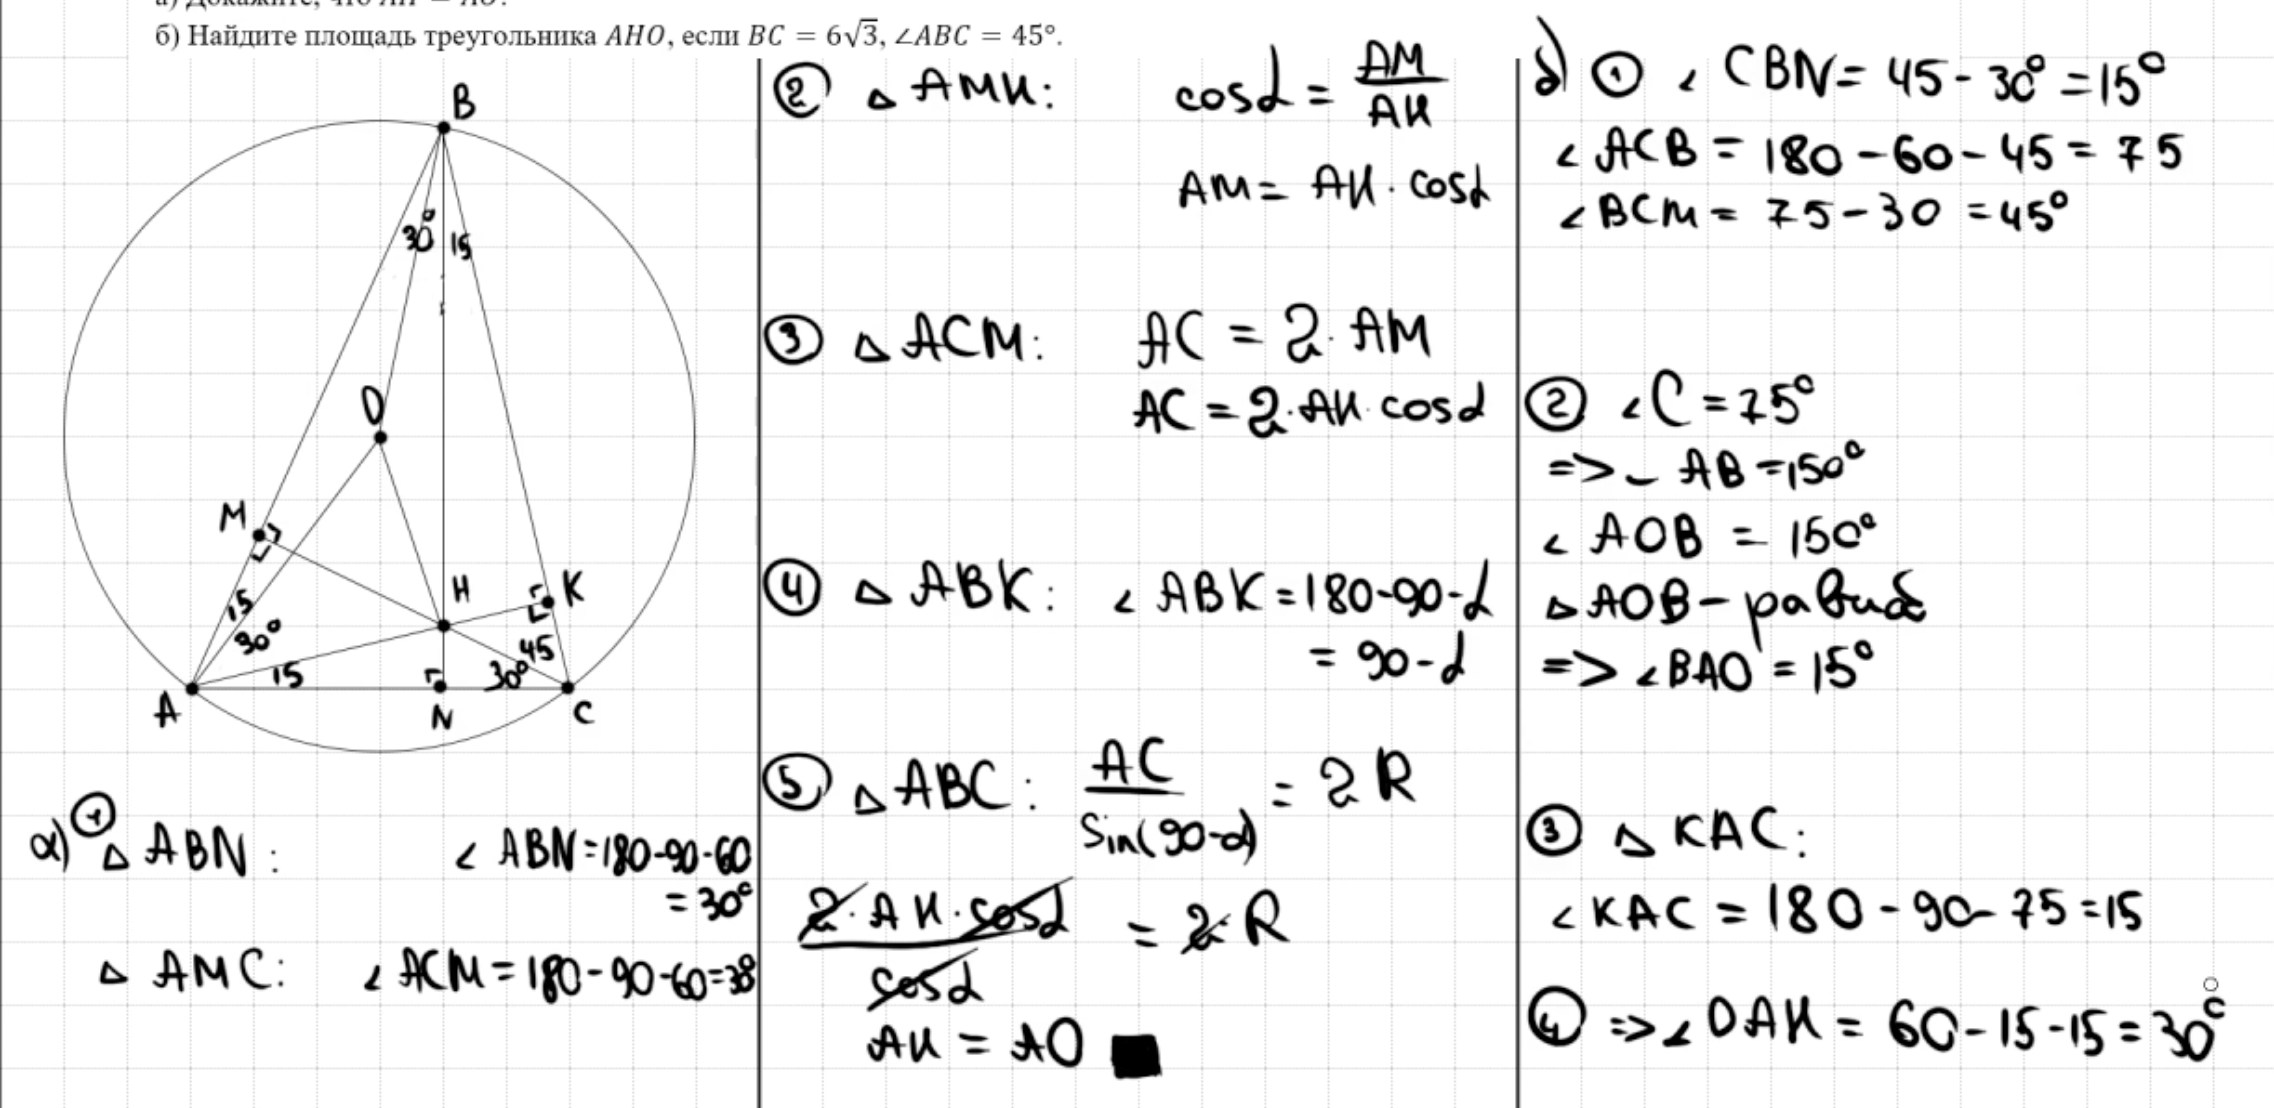 а) Докажите, что AH = AO.
б) Найдите площадь треугольника AHO, если BC = 6√3, ∠ABC = 45°.
B
30° 15
O
M
H
K
15
30°
15
45
30°
A
N
C
а) ① △ ABN: ∠ ABN = 180-90-60
= 30°
△ AMC: ∠ ACM = 180-90-60=30
② △ AMH: cosα = AM/AH
AM = AH · cosα
③ △ ACM: AC = 2 · AM
AC = 2 · AH · cosα
④ △ ABK: ∠ ABK = 180-90-α
= 90-α
⑤ △ ABC: AC/Sin(90-α) = 2R
2 · AH · cosα/cosα = 2 · R
AH = AO ■
б) ① ∠ CBN = 45 - 30° = 15°
∠ ACB = 180 - 60 - 45 = 75
∠ BCM = 75 - 30 = 45°
② ∠ C = 75°
=> ⌣ AB = 150°
∠ AOB = 150°
△ AOB - равноб
=> ∠ BAO = 15°
③ △ KAC:
∠ KAC = 180 - 90 - 75 = 15
④ => ∠ OAH = 60 - 15 - 15 = 30°